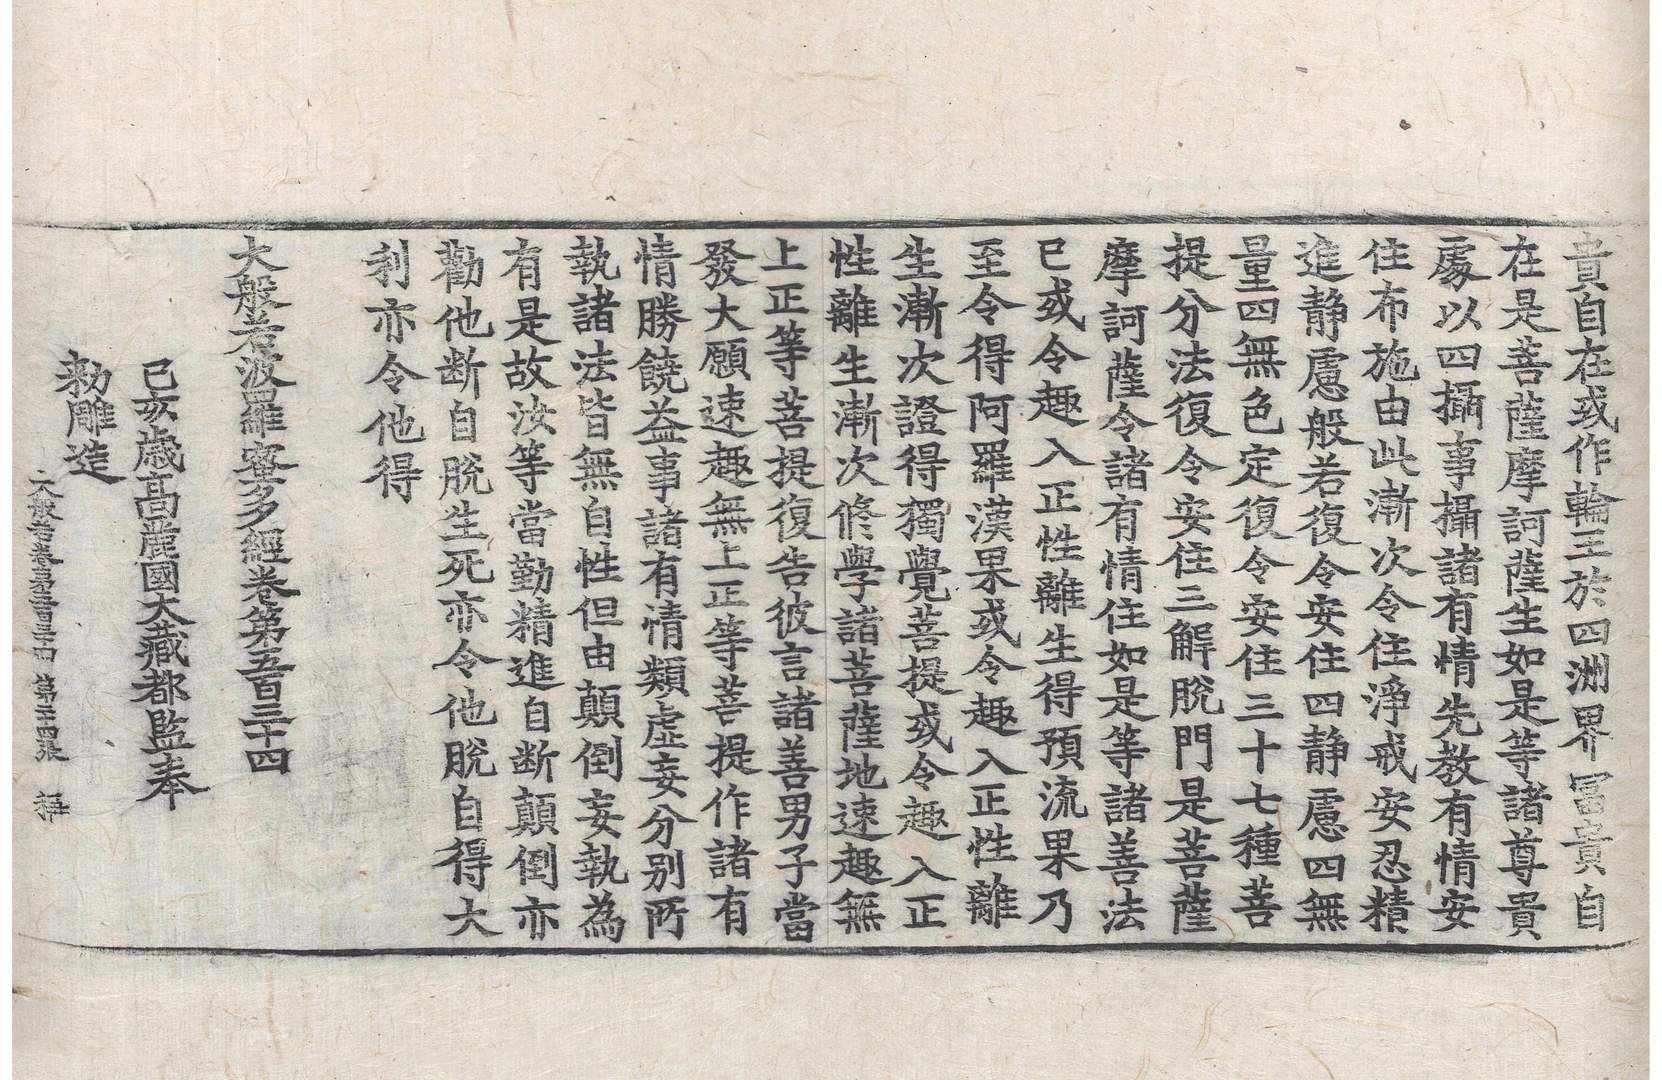 貴自在或作輪王於四洲界冨貴自
在是菩薩摩訶薩生如是等諸尊貴
處以四攝事攝諸有情先教有情安
住布施由此漸次令住淨戒安忍精
進静慮般若復令安住四静慮四無
量四無色定復令安住三十七種菩
提分法復令安住三解脫門是菩薩
摩訶薩令諸有情住如是等諸善法
已或令趣入正性離生得預流果乃
至令得阿羅漢果或令趣入正性離
生漸次證得獨覺菩提或令趣入正
性離生漸次修學諸菩薩地速趣無
上正等菩提復告彼言諸善男子當
發大願速趣無上正等菩提作諸有
情勝饒益事諸有情類虛妄分别所
執諸法皆無自性但由顛倒妄執為
有是故汝等當勤精進自断顛倒亦
勸他断自脫生死亦令他脫自得大
利亦令他得
大般若波羅蜜多經卷第五百三十四
己亥歳高麗國大藏都監奉
勑雕造
大般若卷第五百三十四 第二十四張